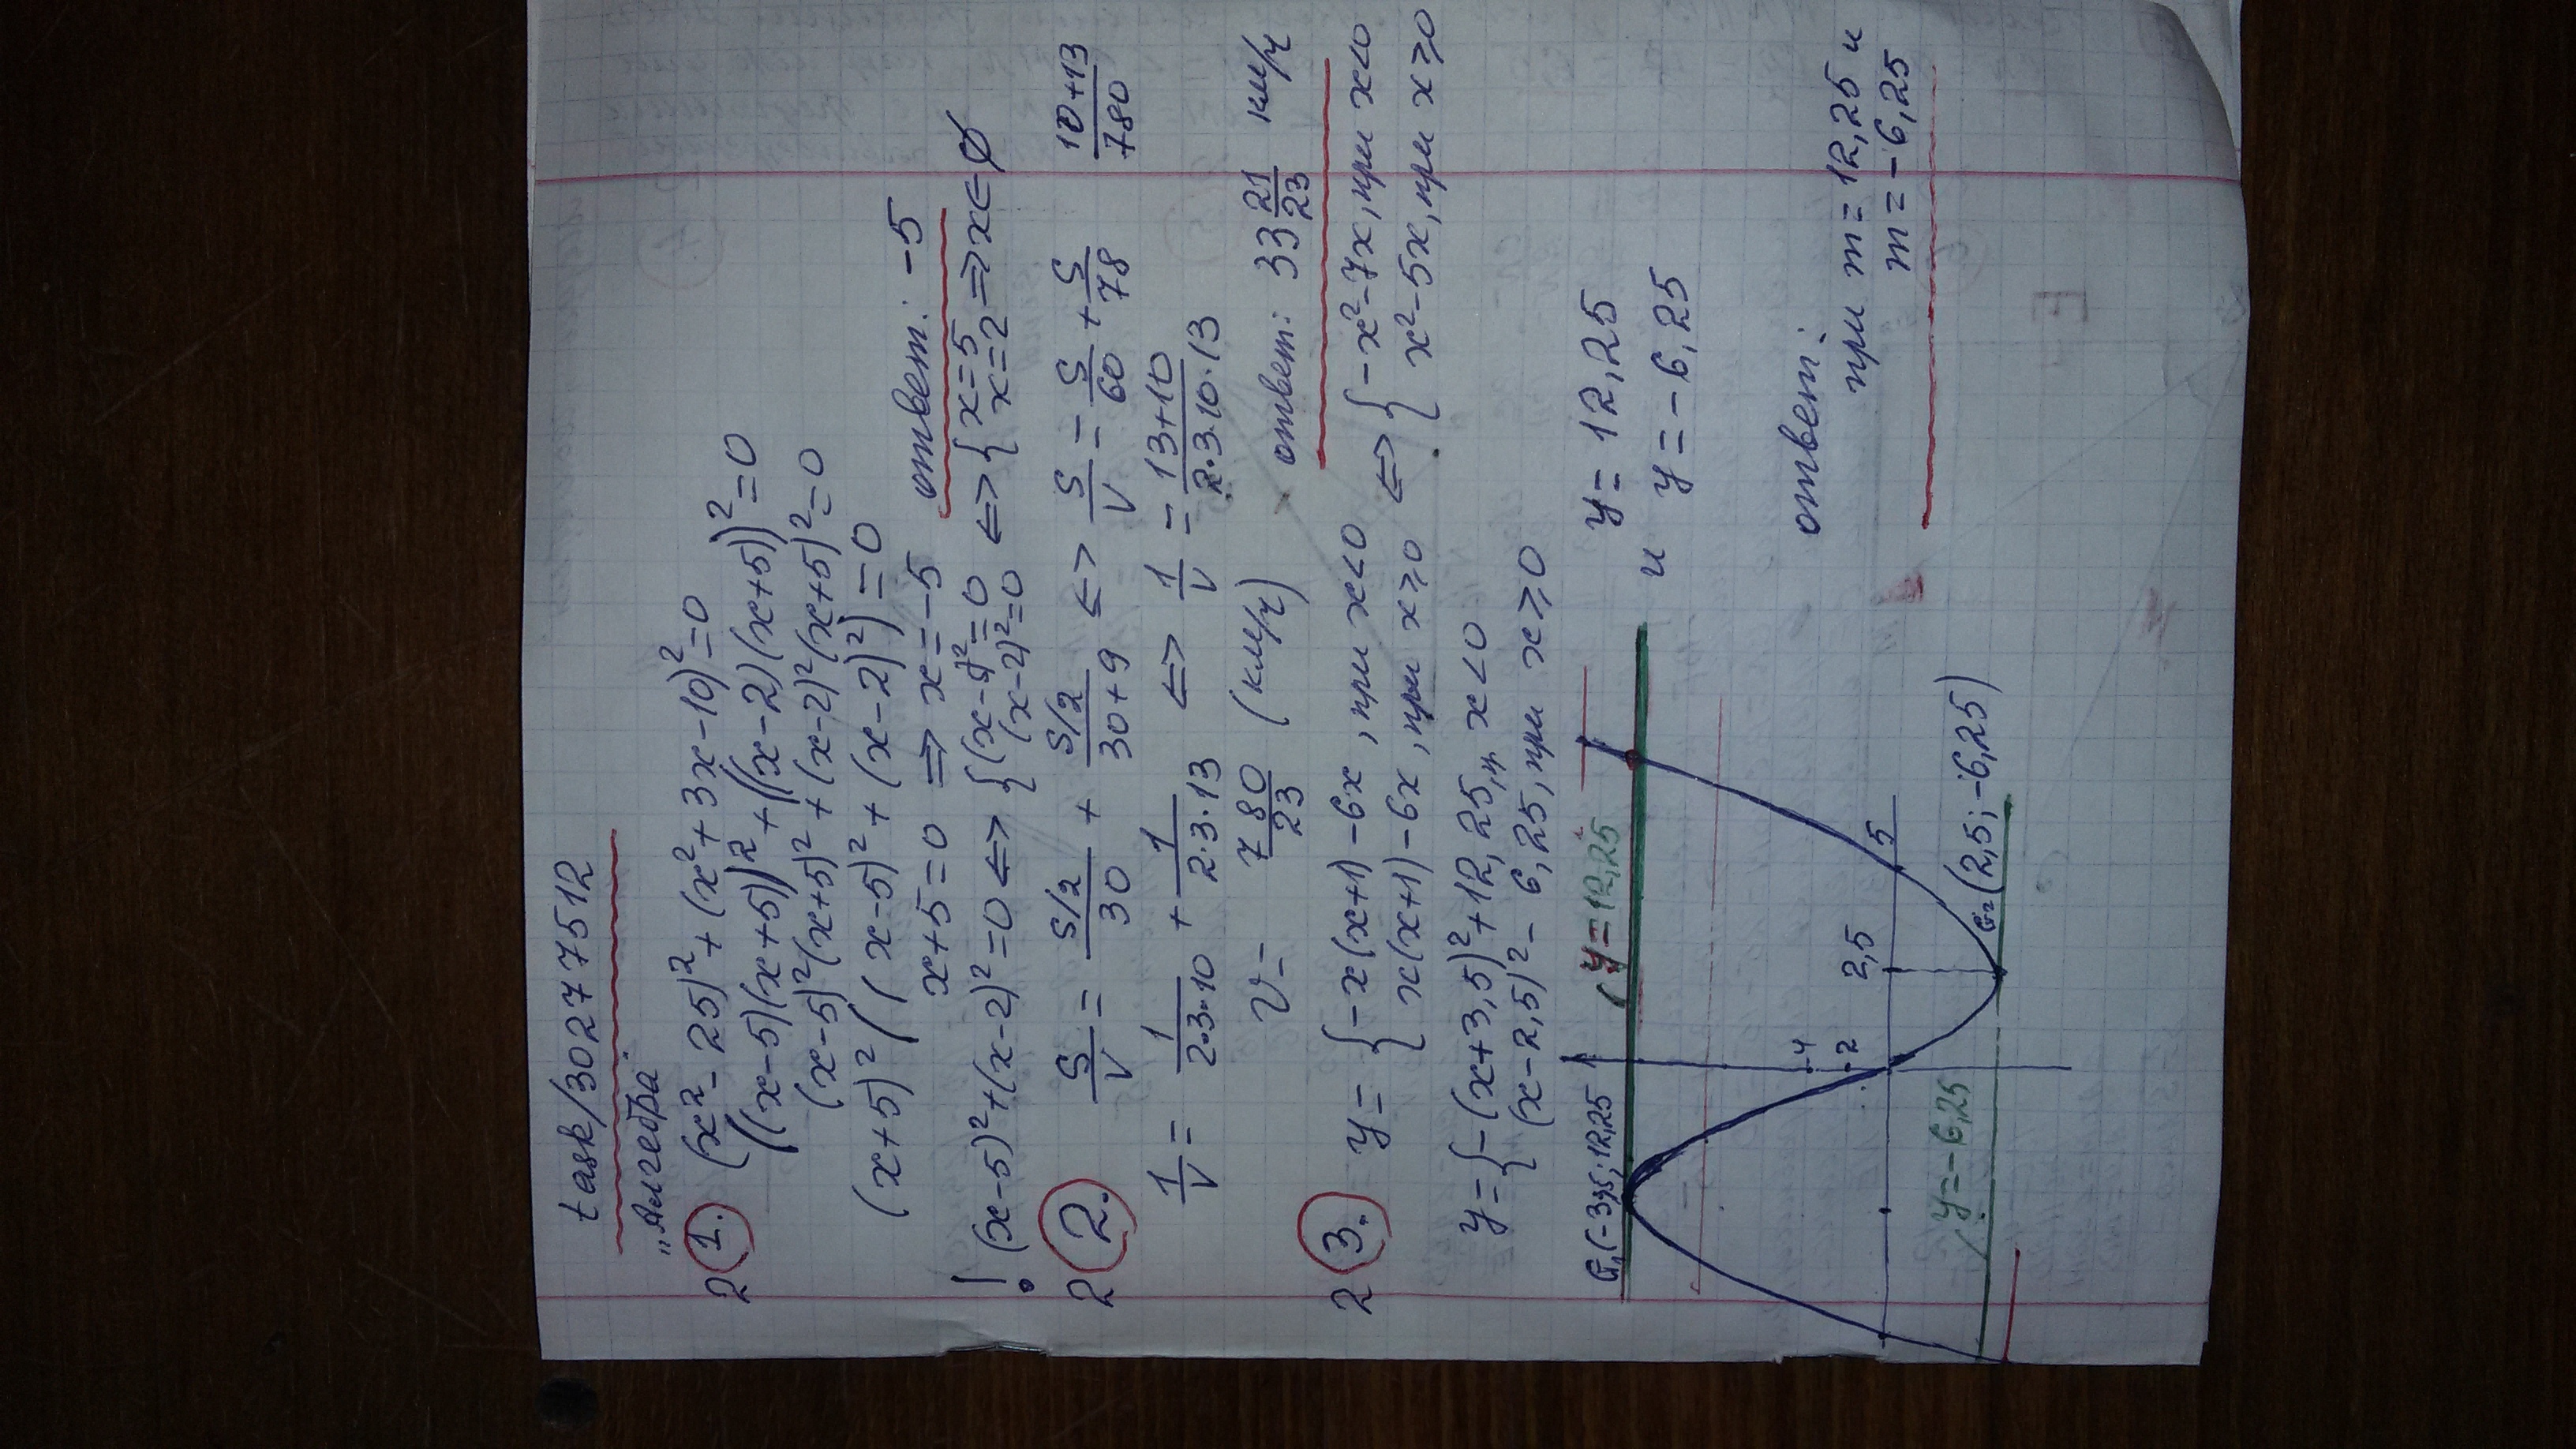 task/30277512
„Алгебра
2 1. (x²-25)²+(x²+3x-10)²=0
((x-5)(x+5))²+((x-2)(x+5))²=0
(x-5)²(x+5)²+(x-2)²(x+5)²=0
(x+5)²((x-5)²+(x-2)²)=0
x+5=0 ⇒ x=-5
ответ: -5
! (x-5)²+(x-2)²=0 ⇔ {(x-5)²=0 (x-2)²=0 ⇔ {x=5 x=2 ⇒ x∈∅
2 2. S/V = S/2/30 + S/2/30+9 ⇔ S/V = S/60 + S/78
10+13/780
1/V = 1/2·3·10 + 1/2·3·13 ⇔ 1/V = 13+10/2·3·10·13
V= 780/23 (км/ч)
ответ: 33 21/23 км/ч
2 3. y= {-x(x+1)-6x, при x<0 x(x+1)-6x, при x⩾0 ⇔ {-x²-7x, при x<0 x²-5x, при x⩾0
y={-(x+3,5)²+12,25, п. x<0 (x-2,5)²-6,25, при x⩾0
G₁(-3,5; 12,25
(y=12,25
y=12,25
и y=-6,25
-4
-2
2,5
5
G₂(2,5; -6,25)
(y=-6,25
ответ:
при m=12,25 и
m=-6,25